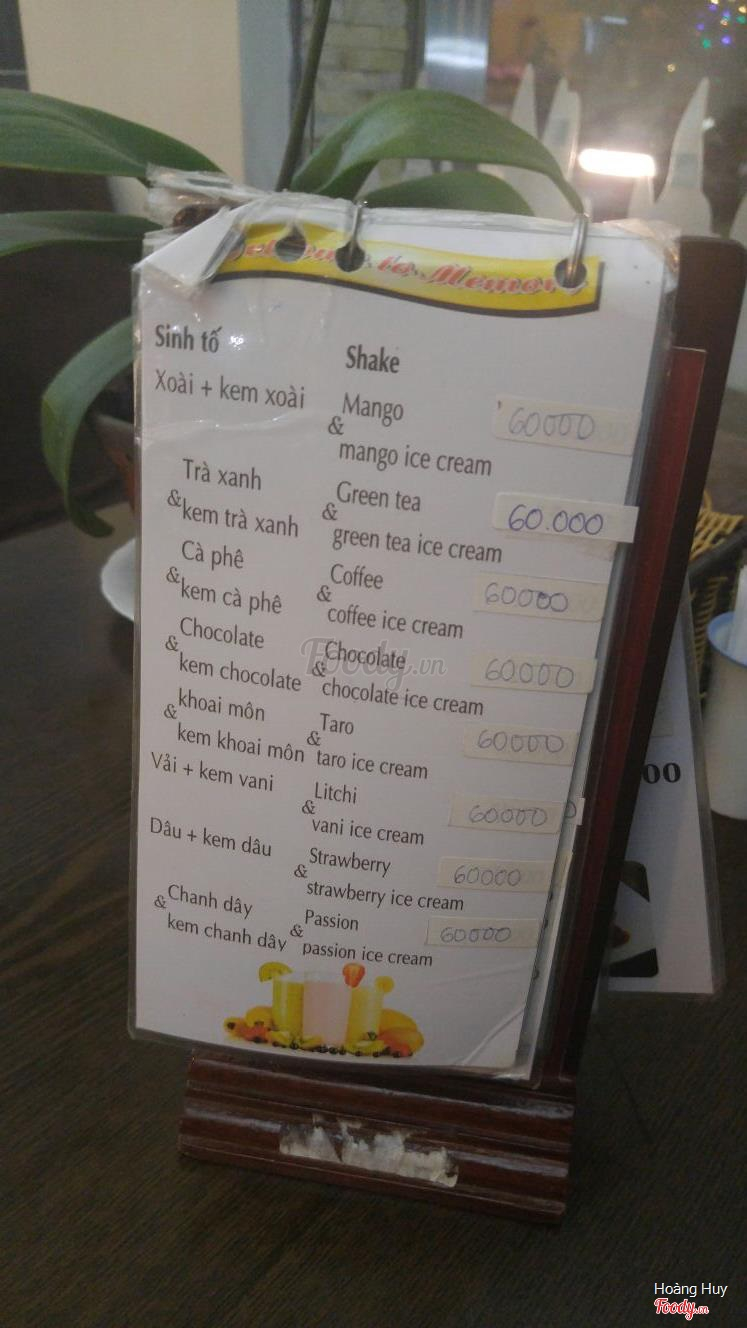 Welcome to Memory
Sinh tố
Shake
Xoài + kem xoài
Mango
&
mango ice cream
60000
Trà xanh
&
kem trà xanh
Green tea
&
green tea ice cream
60.000
Cà phê
&
kem cà phê
Coffee
&
coffee ice cream
60000
Chocolate
&
kem chocolate
Chocolate
&
chocolate ice cream
60.000
khoai môn
&
kem khoai môn
Taro
&
taro ice cream
60000
Vải + kem vani
Litchi
&
vani ice cream
60.000
Dâu + kem dâu
Strawberry
&
strawberry ice cream
60000
Chanh dây
&
kem chanh dây
Passion
&
passion ice cream
60000
Foody.vn
00
Hoàng Huy
Foody.vn